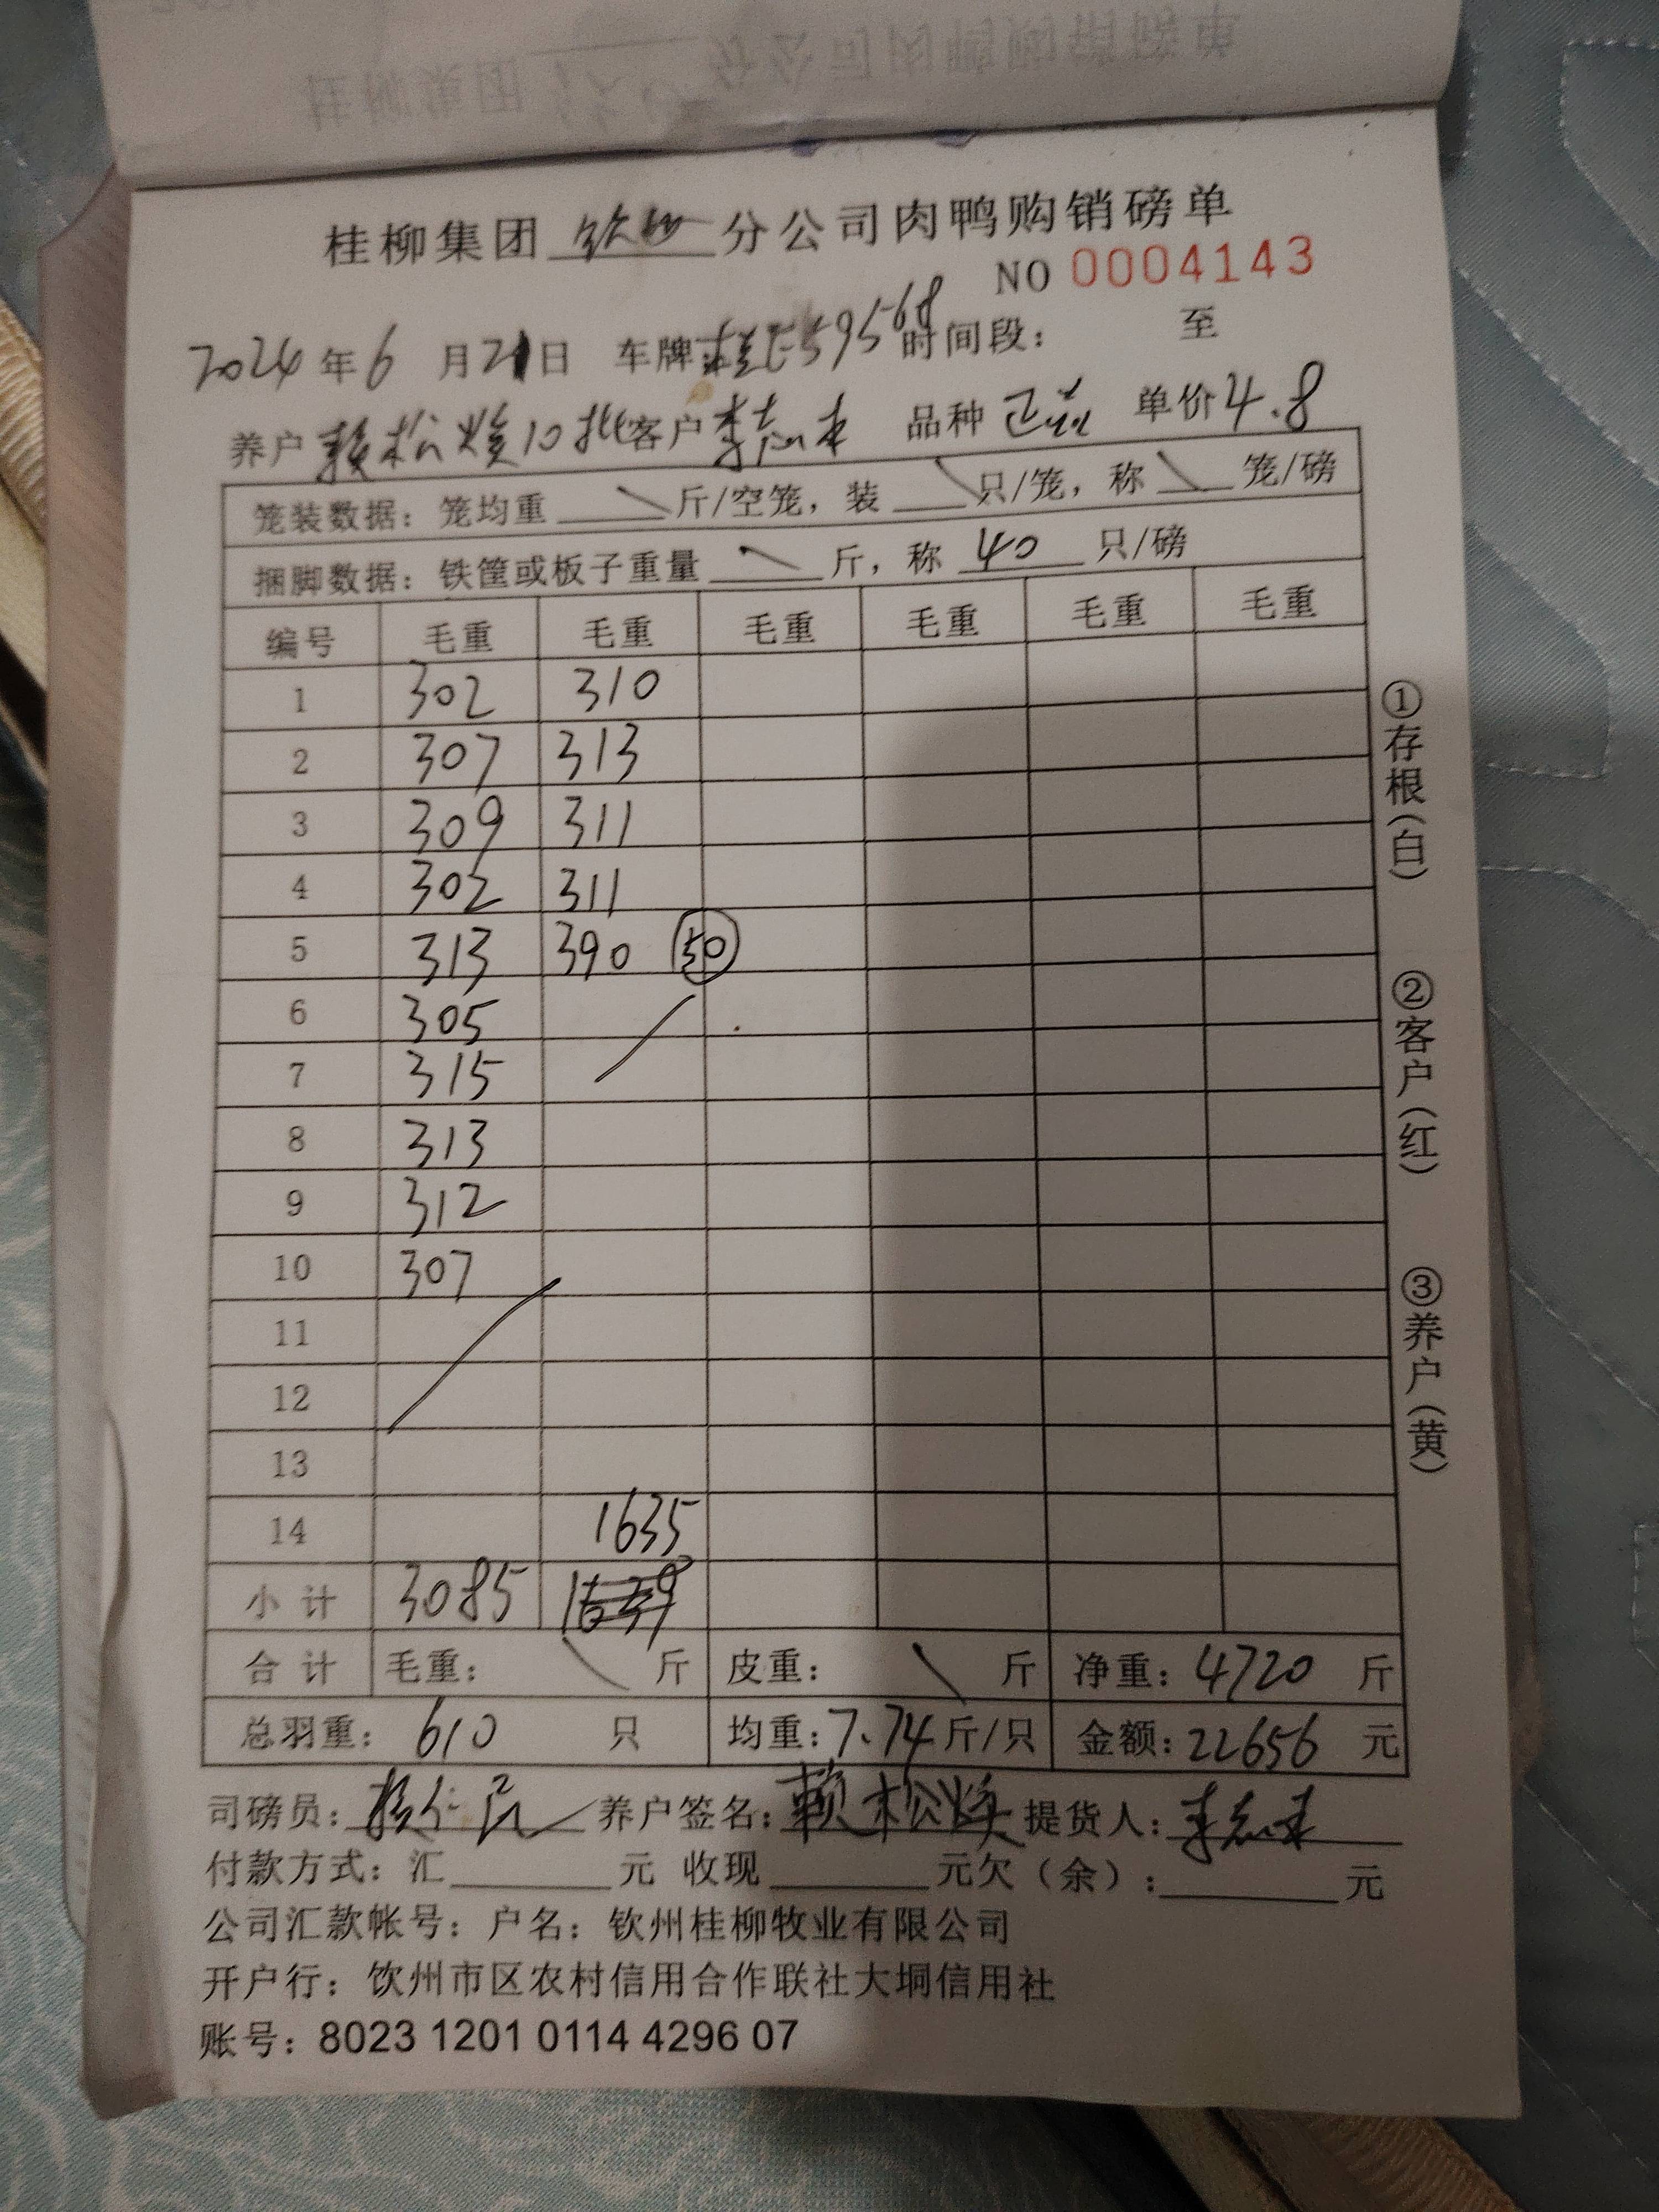 桂柳集团 钦州 分公司肉鸭购销磅单
NO 0004143
2024 年 6 月 21 日 车牌: 时间段: 至
养户 赖松焕10批 客户 李志本 品种 正品 单价 4.8
笼装数据: 笼均重 \ 斤/空笼, 装 \ 只/笼, 称 \ 笼/磅
捆脚数据: 铁筐或板子重量 \ 斤, 称 40 只/磅
编号 毛重 毛重 毛重 毛重 毛重 毛重
1 302 310
2 307 313
3 309 311
4 302 311
5 313 390 50
6 305
7 315
8 313
9 312
10 307
11
12
13
14 1635
小计 3085
合计 毛重: \ 斤 皮重: \ 斤 净重: 4720 斤
总羽重: 610 只 均重: 7.74 斤/只 金额: 22656 元
司磅员: 养户签名: 赖松焕 提货人: 李志本
付款方式: 汇 元 收现 元欠(余): 元
公司汇款帐号: 户名: 钦州桂柳牧业有限公司
开户行: 钦州市区农村信用合作联社大垌信用社
账号: 8023 1201 0114 4296 07
①存根(白)
②客户(红)
③养户(黄)